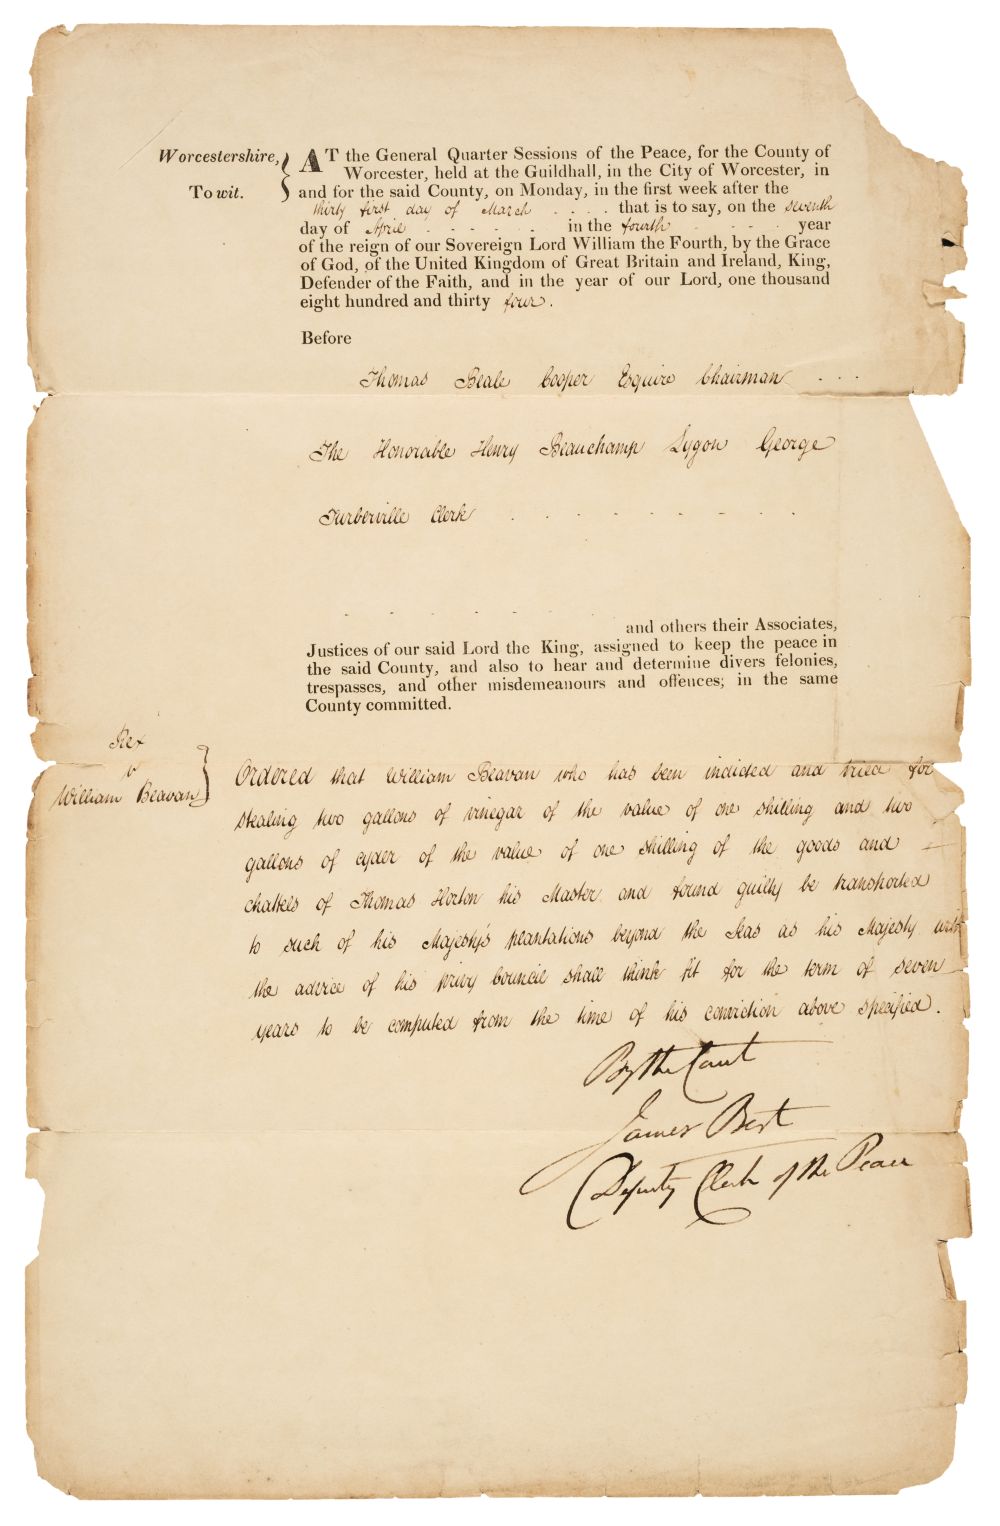 Worcestershire,
To wit.
AT the General Quarter Sessions of the Peace, for the County of
Worcester, held at the Guildhall, in the City of Worcester, in
and for the said County, on Monday, in the first week after the
thirty first day of March . . . . that is to say, on the seventh
day of April - - - - - - in the fourth - - - - year
of the reign of our Sovereign Lord William the Fourth, by the Grace
of God, of the United Kingdom of Great Britain and Ireland, King,
Defender of the Faith, and in the year of our Lord, one thousand
eight hundred and thirty four.
Before
Thomas Beale Cooper Esquire Chairman . . .
The Honorable Henry Beauchamp Lygon George
Turberville Clerk . - - - - - - - -
- - - - - - and others their Associates,
Justices of our said Lord the King, assigned to keep the peace in
the said County, and also to hear and determine divers felonies,
trespasses, and other misdemeanours and offences; in the same
County committed.
Rex
v
William Beavan
Ordered that William Beavan who has been indicted and tried for
stealing two gallons of vinegar of the value of one shilling and two
gallons of cyder of the value of one shilling of the goods and
chattels of Thomas Horton his Master and found guilty be transported
to such of his Majesty's plantations beyond the Seas as his Majesty with
the advice of his privy Council shall think fit for the term of seven
years to be computed from the time of his conviction above specified.
By the Court
James Best
Deputy Clerk of the Peace